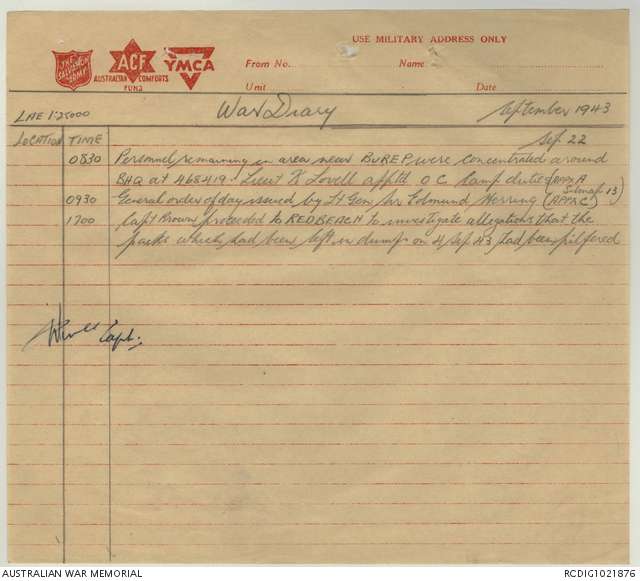 USE MILITARY ADDRESS ONLY
THE SALVATION ARMY
ACF
AUSTRALIAN COMFORTS FUND
YMCA
From No. Name
Unit Date
LAE 1:25000 War Diary September 1943
LOCATION TIME Sep 22
0830 Personnel remaining in area near BuREP were concentrated around
BHQ at 468419. Lieut K Lovell apptd O C Camp duties (APPX A
Submap 13)
0930 General order of day issued by Lt Gen Sir Edmund Herring (APPX C)
1700 Capt Brown proceeded to RED BEACH to investigate allegations that the
packs which had been left in dumps on 4 Sep 43 had been pilfered
Capt.
AUSTRALIAN WAR MEMORIAL RCDIG1021876